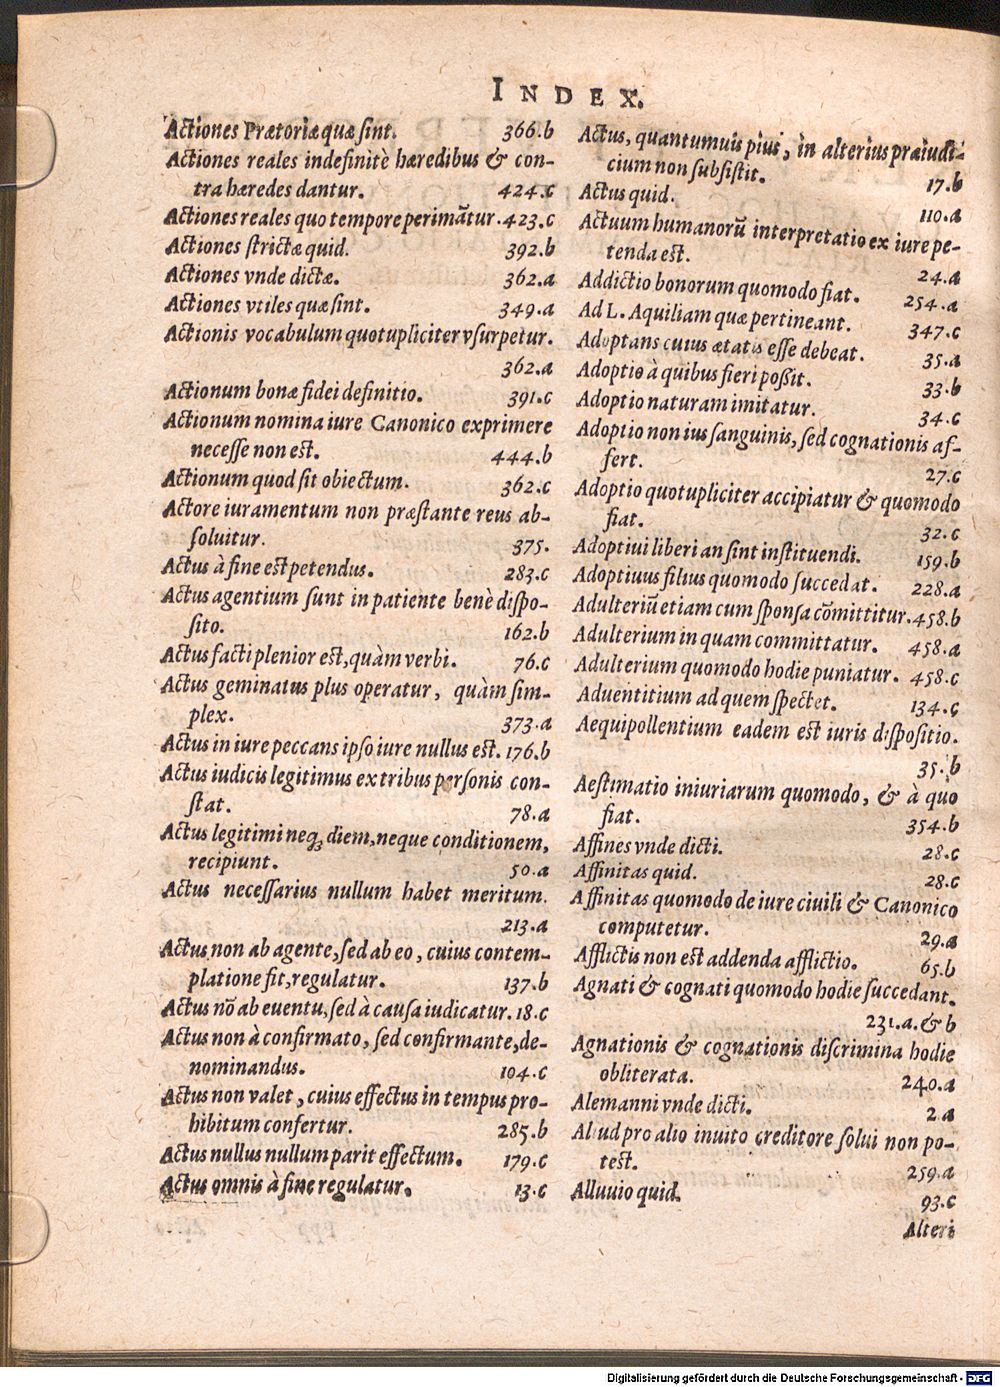 INDEX.
Actiones Prætoriæ quæ sint. 366.b
Actiones reales indefinitè hæredibus & con-
tra hæredes dantur. 424.c
Actiones reales quo tempore perimãtur. 423.c
Actiones strictæ quid. 392.b
Actiones vnde dictæ. 362.a
Actiones vtiles quæ sint. 349.a
Actionis vocabulum quotupliciter vsurpetur.
362.a
Actionum bonæ fidei definitio. 391.c
Actionum nomina iure Canonico exprimere
necesse non est. 444.b
Actionum quod sit obiectum. 362.c
Actore iuramentum non præstante reus ab-
soluitur. 375.
Actus à fine est petendus. 283.c
Actus agentium sunt in patiente benè dispo-
sito. 162.b
Actus facti plenior est, quàm verbi. 76.c
Actus geminatus plus operatur, quàm sim-
plex. 373.a
Actus in iure peccans ipso iure nullus est. 176.b
Actus iudicis legitimus ex tribus personis con-
stat. 78.a
Actus legitimi neq; diem, neque conditionem,
recipiunt. 50.a
Actus necessarius nullum habet meritum.
213.a
Actus non ab agente, sed ab eo, cuius contem-
platione fit, regulatur. 137.b
Actus nõ ab euentu, sed à causa iudicatur. 18.c
Actus non à confirmato, sed confirmante, de-
nominandus. 104.c
Actus non valet, cuius effectus in tempus pro-
hibitum confertur. 285.b
Actus nullus nullum parit effectum. 179.c
Actus omnis à fine regulatur. 13.c
Actus, quantumuis pius, in alterius præiudi-
cium non subsistit. 17.b
Actus quid. 110.a
Actuum humanorũ interpretatio ex iure pe-
tenda est. 24.a
Addictio bonorum quomodo fiat. 254.a
Ad L. Aquiliam quæ pertineant. 347.c
Adoptans cuius ætatis esse debeat. 35.a
Adoptio à quibus fieri poßit. 33.b
Adoptio naturam imitatur. 34.c
Adoptio non ius sanguinis, sed cognationis af-
fert. 27.c
Adoptio quotupliciter accipiatur & quomodo
fiat. 32.c
Adoptiui liberi an sint instituendi. 159.b
Adoptiuus filius quomodo succedat. 228.a
Adulteriũ etiam cum sponsa cõmittitur. 458.b
Adulterium in quam committatur. 458.a
Adulterium quomodo hodie puniatur. 458.c
Aduentitium ad quem spectet. 134.c
Aequipollentium eadem est iuris dispositio.
35.b
Aestimatio iniuriarum quomodo, & à quo
fiat. 354.b
Affines vnde dicti. 28.c
Affinitas quid. 28.c
Affinitas quomodo de iure ciuili & Canonico
computetur. 29.a
Afflictis non est addenda afflictio. 65.b
Agnati & cognati quomodo hodie succedant.
231.a. & b
Agnationis & cognationis discrimina hodie
obliterata. 240.a
Alemanni vnde dicti. 2 a
Aliud pro alio inuito creditore solui non po-
test. 259.a
Alluuio quid. 93.c
Alteri
Digitalisierung gefördert durch die Deutsche Forschungsgemeinschaft - DFG